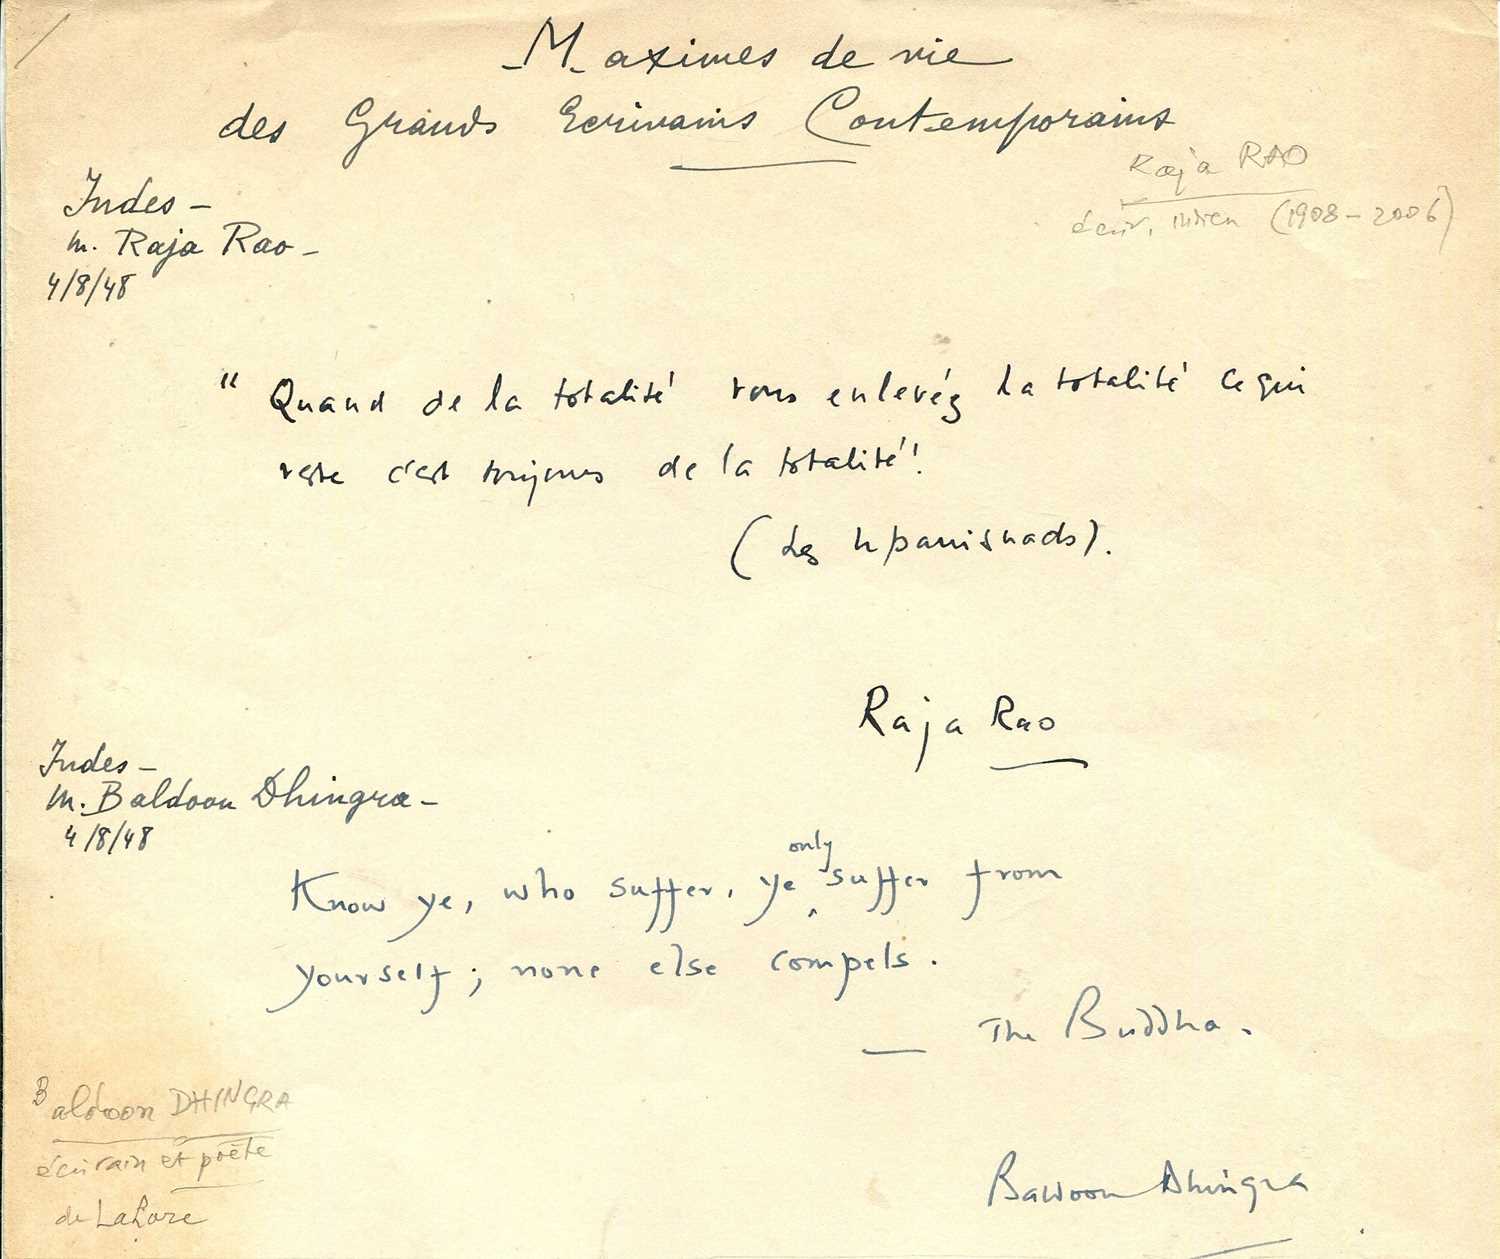 Maximes de vie
des Grands Ecrivains Contemporains
Raja RAO
écriv. indien (1908-2006)
Indes -
M. Raja Rao -
4/8/48
" Quand de la totalité vous enlevéz la totalité ce qui
reste c'est toujours de la totalité".
(Les Upanishads).
Raja Rao
Indes -
M. Baldoon Dhingra -
4/8/48
only
Know ye, who suffer, ye ^ suffer from
yourself; none else compels.
— The Buddha.
Baldoon DHINGRA
écrivain et poète
de Lahore
Baldoon Dhingra